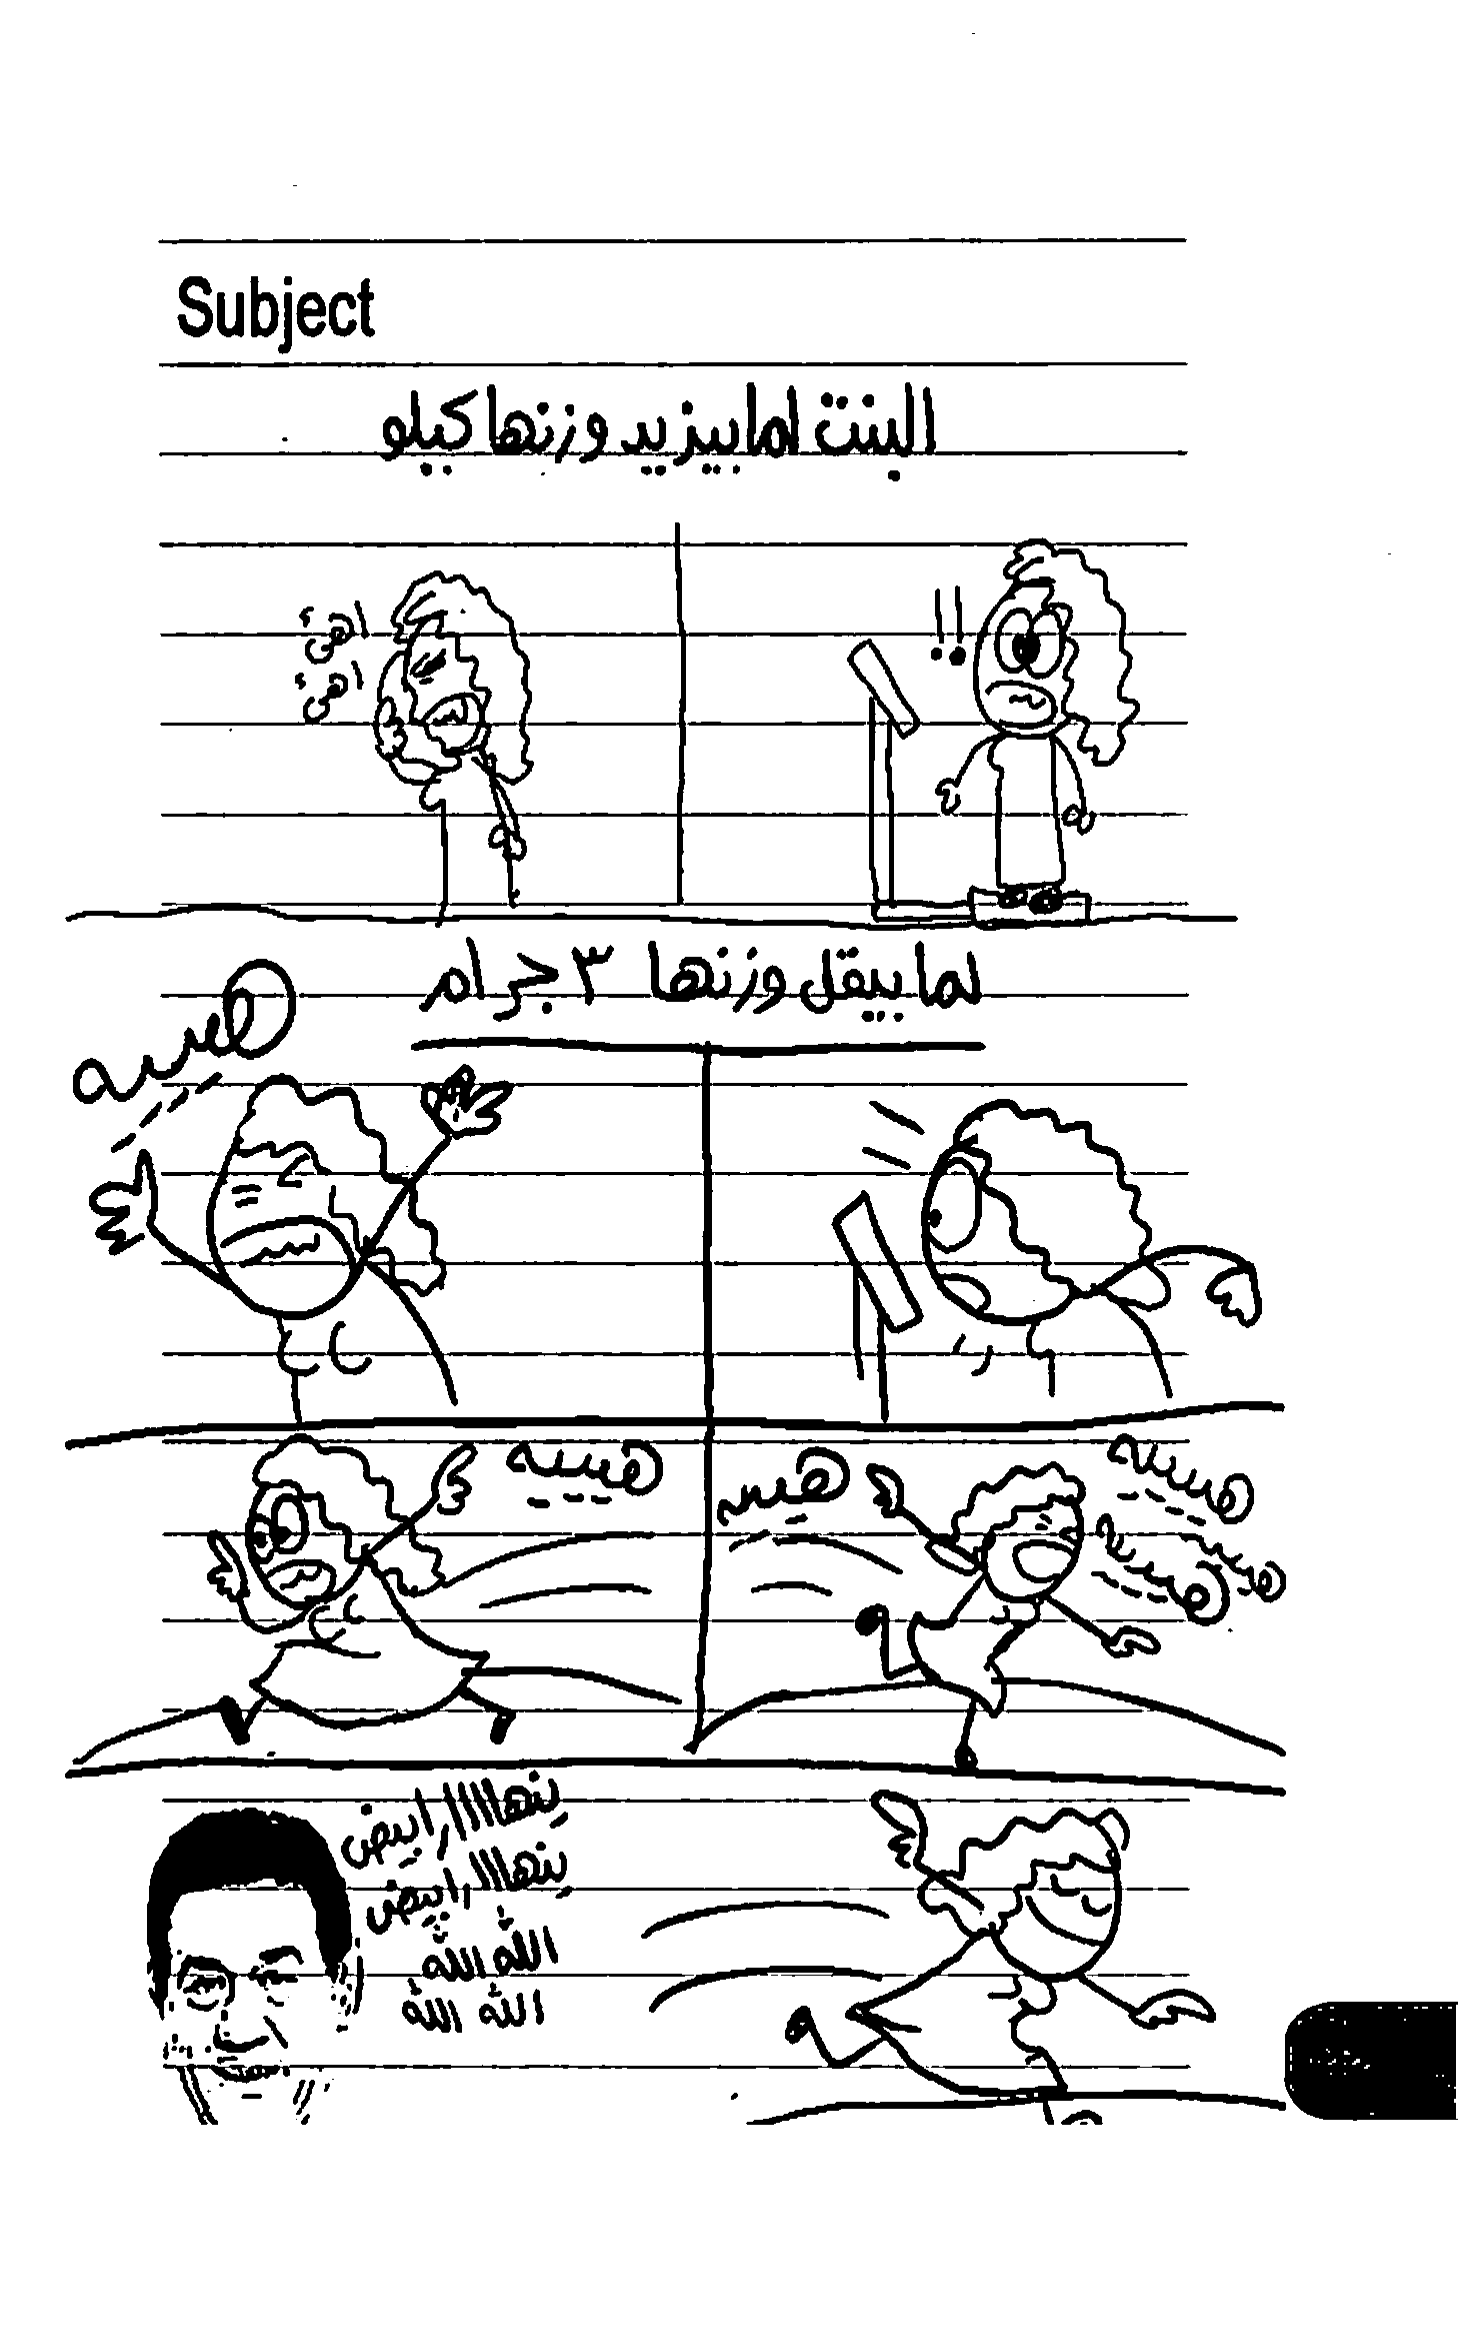 Subject
البنت لما بيزيد وزنها كيلو
!!
اهئ
اهئ
لما بيقل وزنها ٣ جرام
هييييه
هييييه
هييييه
هييييه
هييييه
نهاااار ابيض
نهااار ابيض
الله الله
الله الله